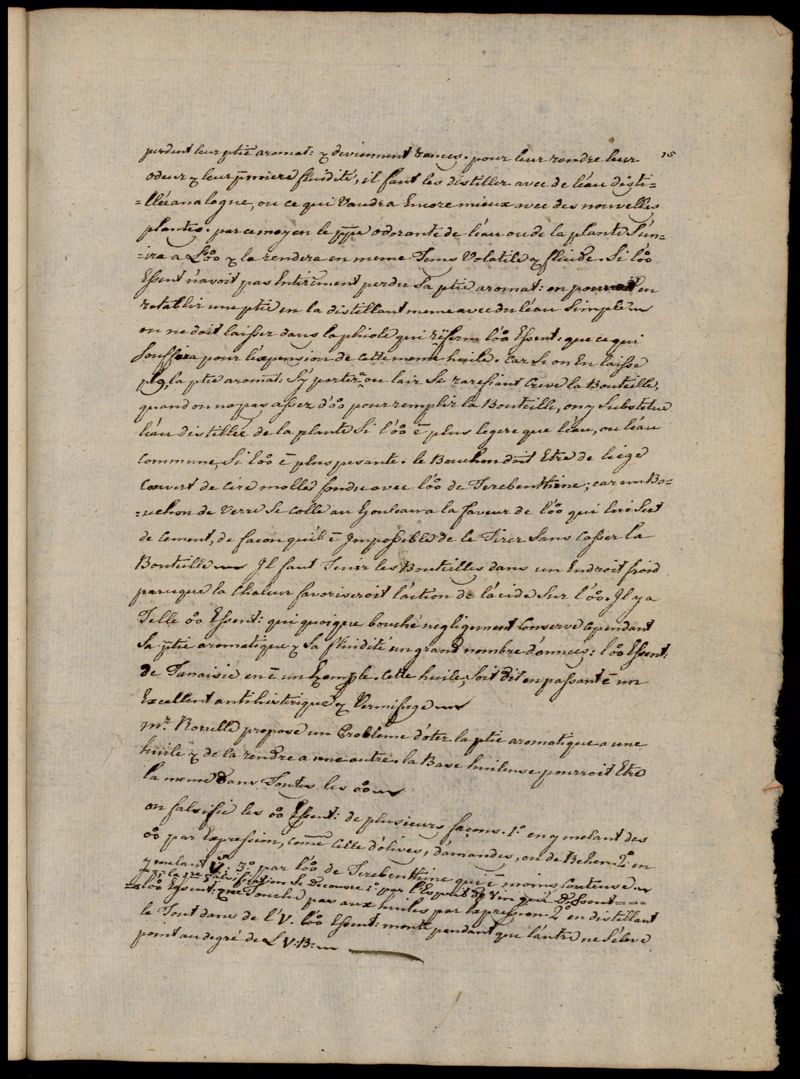 15
perdent leur ptie aromat: & deviennent rances. pour leur rendre leur
odeur & leur pmiere fluidité, il faut les distiller avec de l'eau disti-
-llée analogue, ou ce qui Vaudra Encore mieux avec des nouvelles
plantes. par ce moyen le ppe odorant de l'eau ou de la plante S'un-
-ira a L'oo & la rendera en meme Tems Volatile & fluide. Si l'oo
Essent n'avoit pas Entierment perdu Sa ptie aromat: on pourroit en
retablir une ptie en la distillant meme avec du l'eau Simple
on ne doit laisser dans la phiole qui rēferm l'oo Essent: que ce qui
Souffira pour l'expension de cette meme huile. car Si on En laisse
pl9, la ptie aromat: S'y pertera ou l'air Se rarefiant Creve la Bouteille,
quand on na pas assez d'oo pour remplir la Bouteille, on y Substitue
l'eau distillée de la plante Si l'oo ē plus legere que l'eau, ou l'eau
commune, Si l'oo ē plus pesante. le Bouchon doit Etre de liege
Couvert de cire molle fondu avec l'oo de Terebenthine; car un Bo-
-uchon de Verre Se colle au Gouleau a la faveur de l'oo qui lui Sert
de cement, de facon qu'il ē Impossible de le Tirer Sans Casser la
Bouteille Il faut Tenir les Bouteilles dans un Endroit froid
parceque la Chaleur favoriseroit l'action de l'acide Sur l'oo. Il y a
Telle oo Essent: qui quoique bouché negligement Conserve Cependant
Sa ptie aromatique & Sa fluidité un grand nombre d'annees: l'oo Essent:
de Tanaisie en ē un Exemple. Cette huile, Soit dit en passant ē un
Excellent antihisterique & Vermifuge
mr. Rouelle propose un Probleme d'oter la ptie aromatique a une
huile & de la rendre a une autre. la Base huileuse pourroit Etre
la meme dans Toutes les oo
on falsifie les oo Essent: de plusieurs façons. 1° en y melant des
oo par Expression, come celle d'olives, d'amandes, ou de Behen. 2° en
y melant V. 3° par l'oo de Terebenthine qui ē moins Couteuse
la 1ere falsification Se decouvre 1° par l'Esprit de Vin qui Disout
l'oo Essent: & ne Touche pas aux huiles par Expression. 2° en distillant
le Tout dans de l'V. l'oo Essent: monte pendant que l'autre ne S'eleve
point au degré de L'V:B: